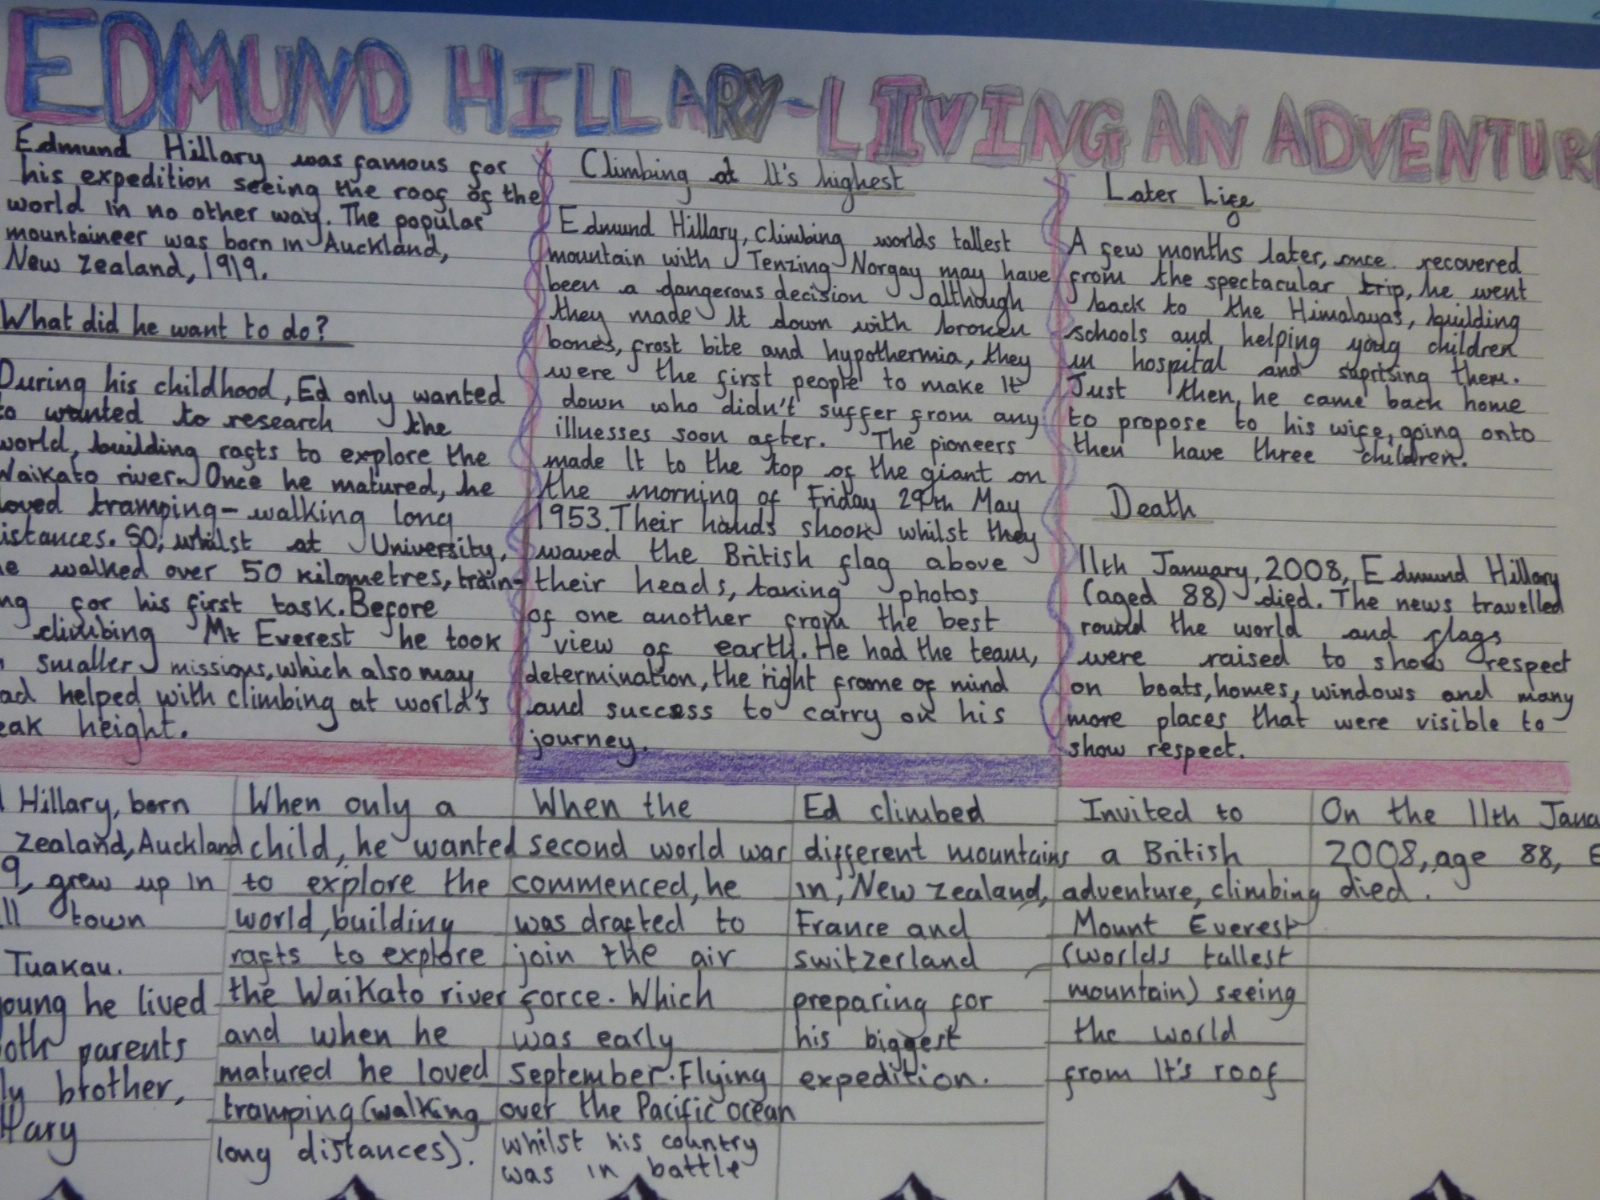 EDMUND HILLARY-LIVING AN ADVENTUR
Edmund Hillary was famous for
his expedition seeing the roof of the
world in no other way. The popular
mountaineer was born in Auckland,
New Zealand, 1919.
What did he want to do?
During his childhood, Ed only wanted
to wanted to research the
world, building rafts to explore the
Waikato river. Once he matured, he
loved tramping- walking long
istances. SO, whilst at University,
he walked over 50 kilometres, train-
ng for his first task. Before
climbing Mt Everest he took
n smaller missions, which also may
ad helped with climbing at world's
eak height.
Climbing at It's highest
Edmund Hillary, climbing worlds tallest
mountain with Tenzing Norgay may have
been a dangerous decision although
they made It down with broken
bones, frost bite and hypothermia, they
were the first people to make It
down who didn't suffer from any
illnesses soon after. The pioneers
made It to the top of the giant on
the morning of Friday 29th May
1953. Their hands shook whilst they
waved the British flag above
their heads, taking photos
of one another from the best
view of earth. He had the team,
determination, the right frame of mind
and success to carry on his
journey.
Later Life
A few months later, once recovered
from the spectacular trip, he went
back to the Himalayas, building
schools and helping young children
in hospital and suprising them.
Just then, he came back home
to propose to his wife, going onto
then have three children.
Death
11th January, 2008, Edmund Hillary
(aged 88) died. The news travelled
round the world and flags
were raised to show respect
on boats, homes, windows and many
more places that were visible to
show respect.
Hillary, born
Zealand, Auckland
9, grew up in
ll town
Tuakau.
oung he lived
oth parents
ly brother,
llary
When only a
child, he wanted
to explore the
world, building
rafts to explore
the Waikato river
and when he
matured he loved
tramping (walking
long distances).
When the
second world war
commenced, he
was drafted to
join the air
force. Which
was early
September. Flying
over the Pacific ocean
whilst his country
was in battle
Ed climbed
different mountains
in, New Zealand,
France and
switzerland
preparing for
his biggest
expedition.
Invited to
a British
adventure, climbing
Mount Everest
(worlds tallest
mountain) seeing
the world
from It's roof
On the 11th Janua
2008, age 88, E
died.